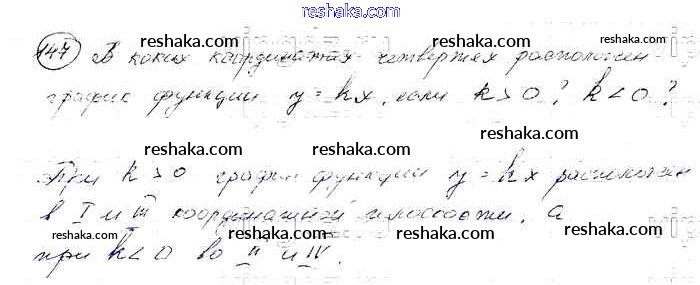 reshaka.com
147 В каких координатных четвертях расположен
график функции y = kx, если k > 0? k < 0?
При k > 0 график функции y = kx расположен
в I и III координатной плоскости, а
при k < 0 во II и IV.
reshaka.com
reshaka.com
reshaka.com
reshaka.com
reshaka.com
reshaka.com
reshaka.com
reshaka.com
reshaka.com
reshaka.com
reshaka.com
reshaka.com